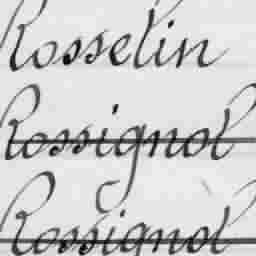 Rosselin
Rossignol
Rossignol